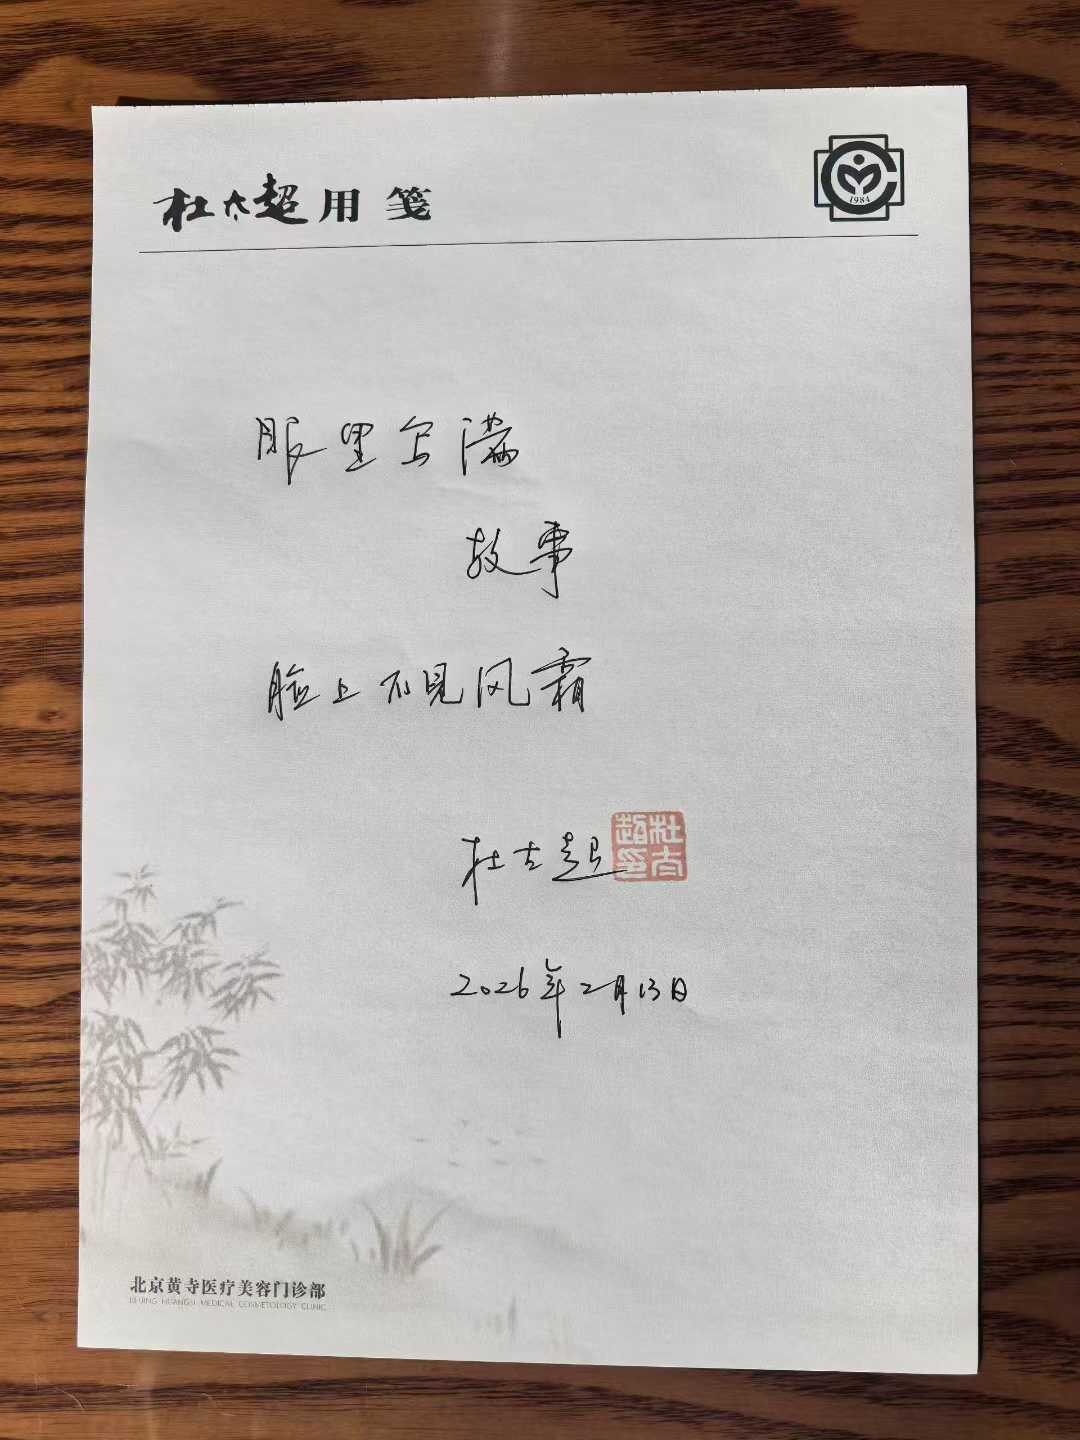 杜太超用笺
1984
眼里写满
故事
脸上不见风霜
杜太超
杜太超印
2026年2月13日
北京黄寺医疗美容门诊部
BEIJING HUANGSI MEDICAL COSMETOLOGY CLINIC